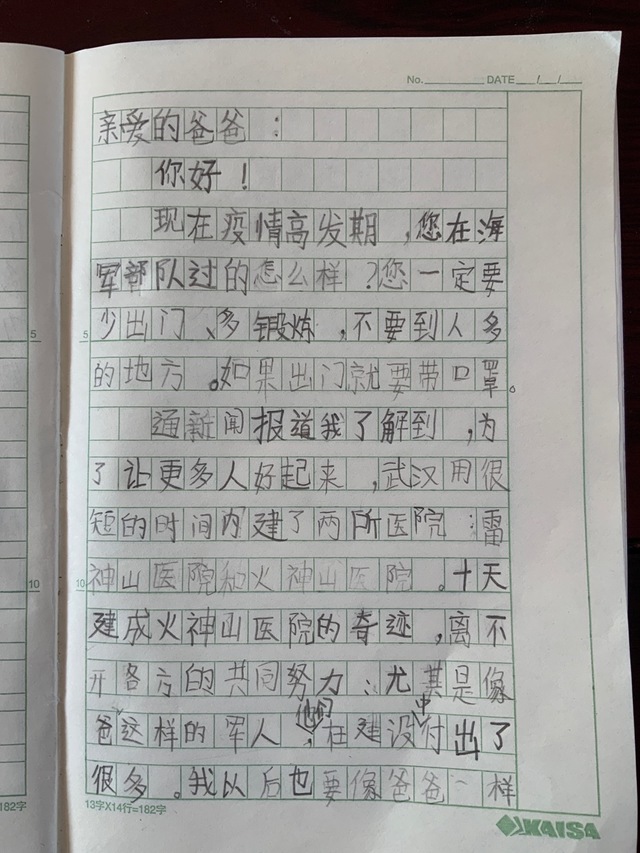 No. DATE / /
亲爱的爸爸：
你好！
现在疫情高发期，您在海
军部队过的怎么样？您一定要
少出门、多锻炼，不要到人多
的地方。如果出门就要带口罩。
通新闻报道我了解到，为
了让更多人好起来，武汉用很
短的时间内建了两所医院：雷
神山医院和火神山医院。十天
建成火神山医院的奇迹，离不
开各方的共同努力：尤其是像
爸这样的军人，他们在建设中付出了
很多。我以后也要像爸爸一样
5
5
10
10
182字
13字X14行=182字
KAISA